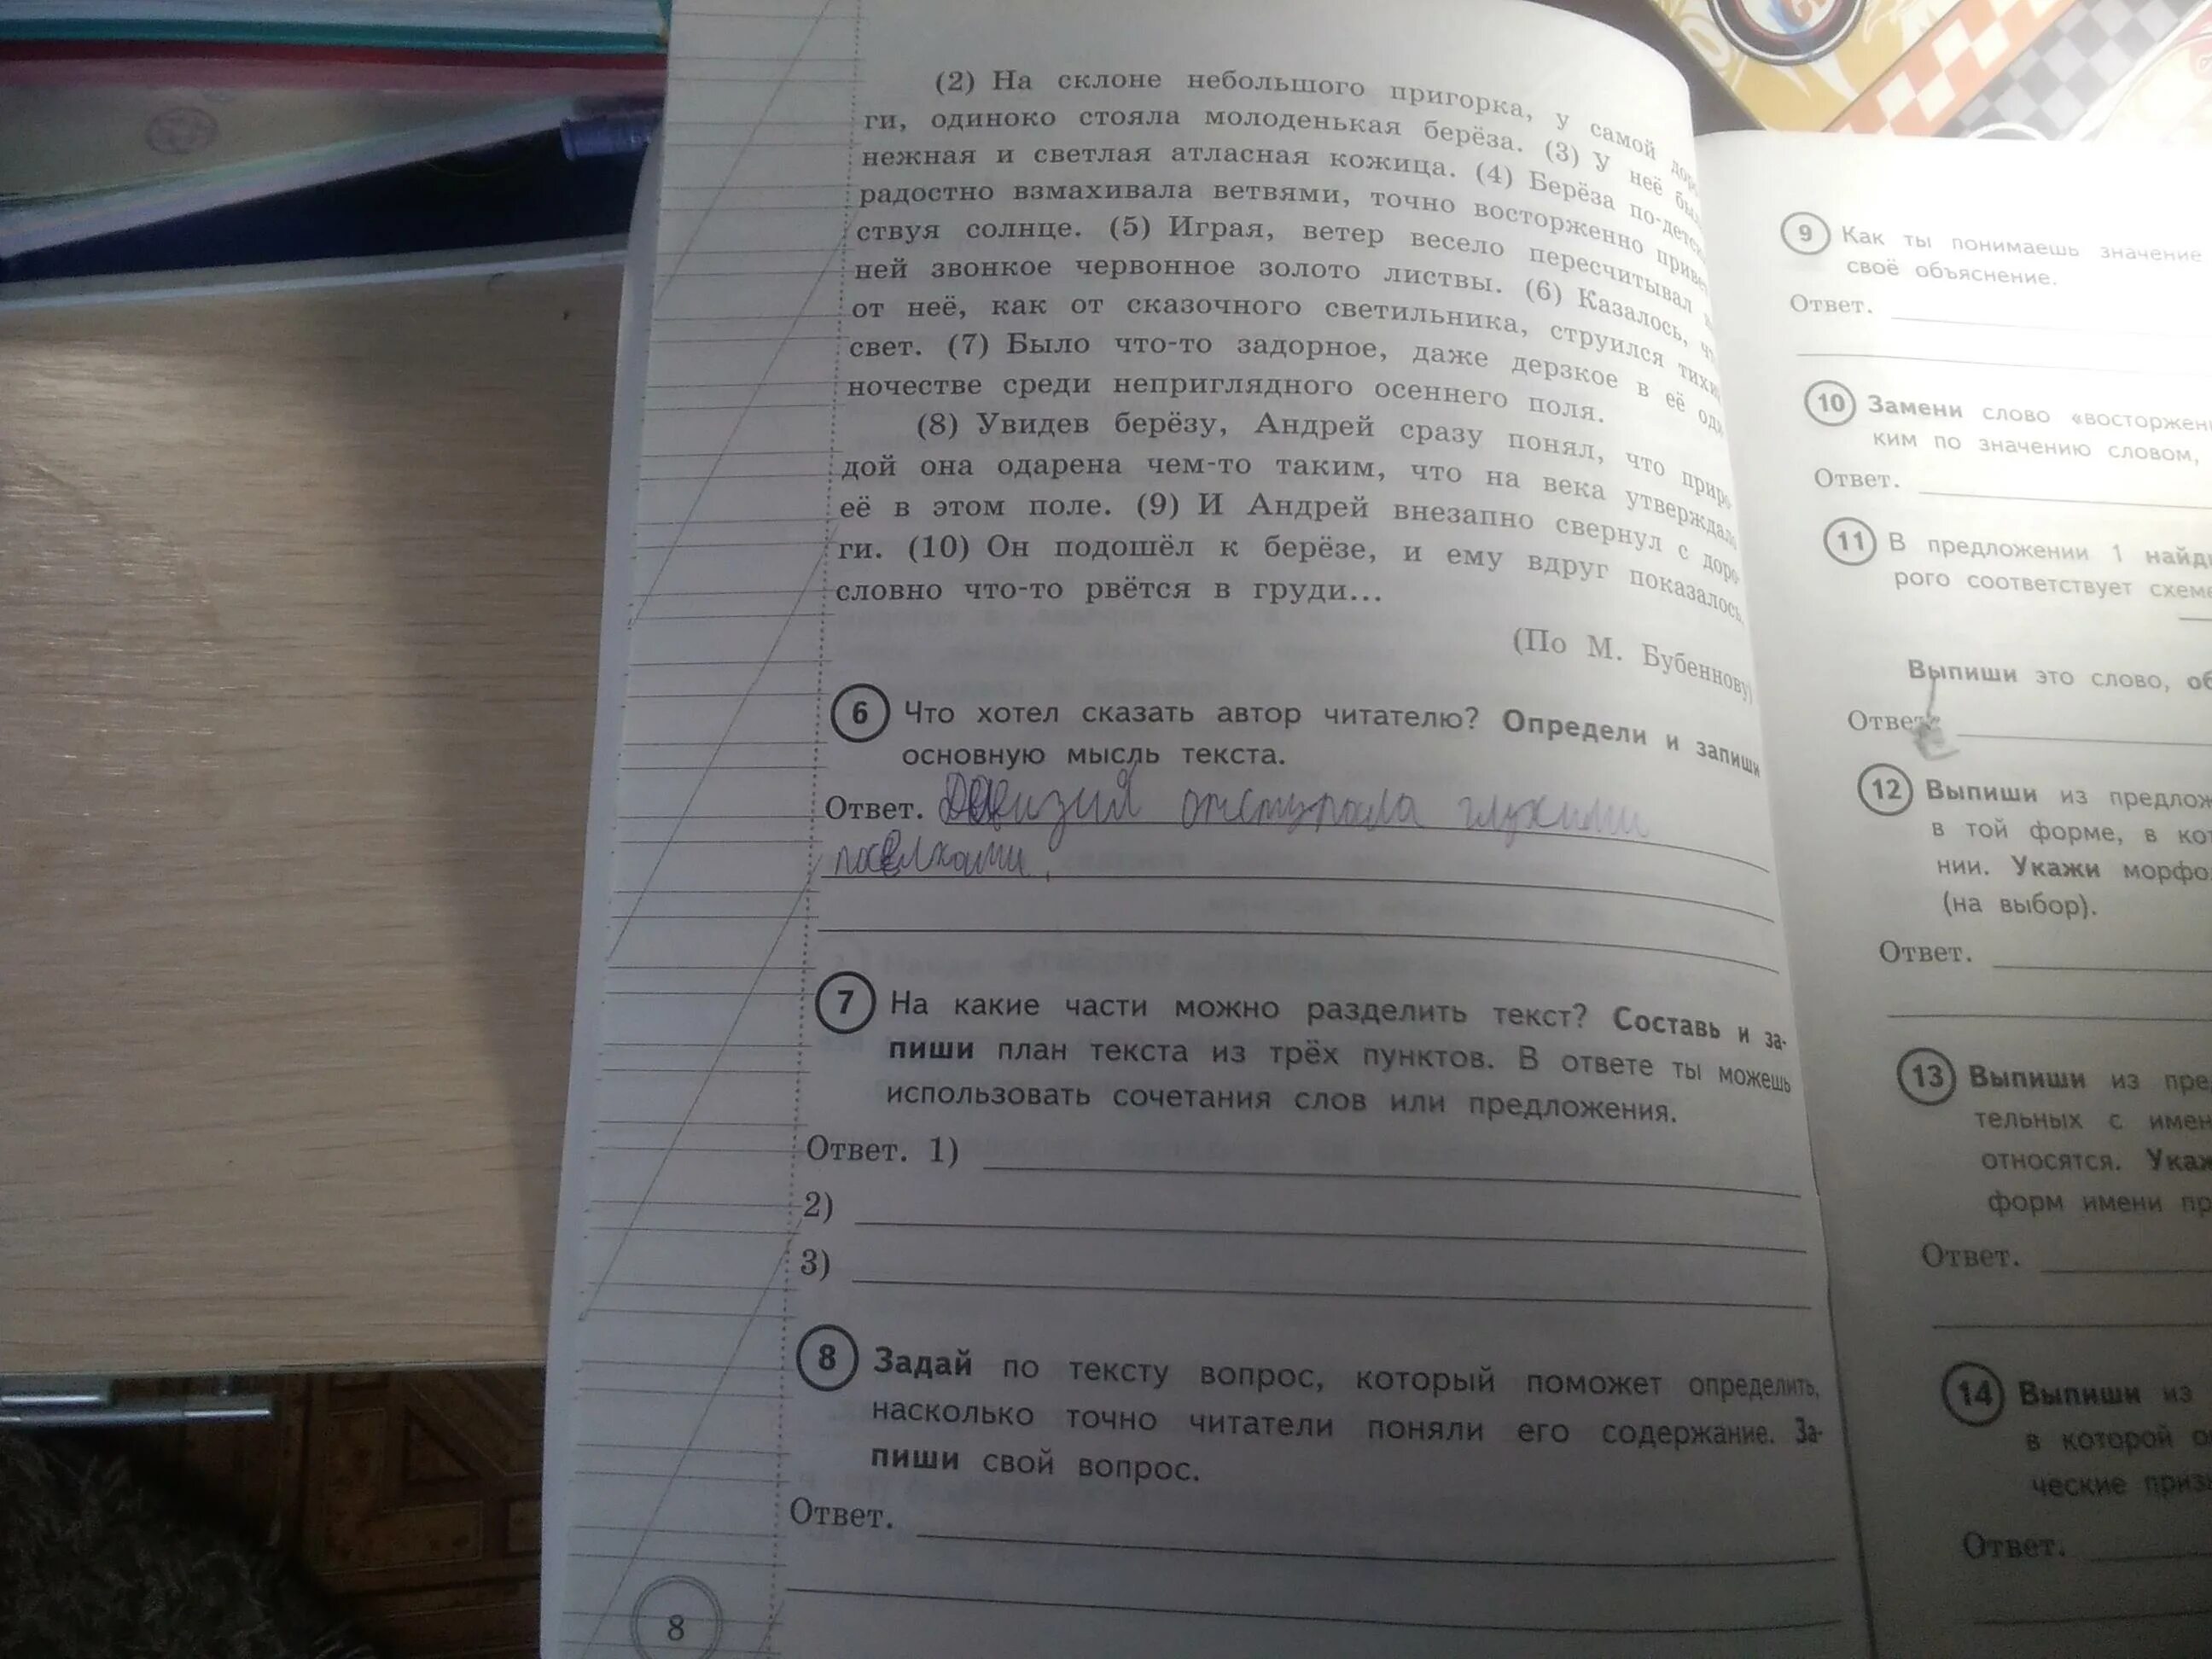 (2) На склоне небольшого пригорка, у самой доро
ги, одиноко стояла молоденькая берёза. (3) У неё был
нежная и светлая атласная кожица. (4) Берёза по-детск
радостно взмахивала ветвями, точно восторженно привет
ствуя солнце. (5) Играя, ветер весело пересчитывал н
ней звонкое червонное золото листвы. (6) Казалось, чт
от неё, как от сказочного светильника, струился тихи
свет. (7) Было что-то задорное, даже дерзкое в её оди
ночестве среди неприглядного осеннего поля.
(8) Увидев берёзу, Андрей сразу понял, что приро-
дой она одарена чем-то таким, что на века утверждало
её в этом поле. (9) И Андрей внезапно свернул с доро-
ги. (10) Он подошёл к берёзе, и ему вдруг показалось,
словно что-то рвётся в груди...
(По М. Бубеннову)
6 Что хотел сказать автор читателю? Определи и запиши
основную мысль текста.
Ответ. отступала глухими
посёлками.
7 На какие части можно разделить текст? Составь и за-
пиши план текста из трёх пунктов. В ответе ты можешь
использовать сочетания слов или предложения.
Ответ. 1)
2)
3)
8 Задай по тексту вопрос, который поможет определить,
насколько точно читатели поняли его содержание. За-
пиши свой вопрос.
Ответ.
8
9 Как ты понимаешь значение
своё объяснение.
Ответ.
10 Замени слово «восторжен
ким по значению словом,
Ответ.
11 В предложении 1 найд
рого соответствует схеме
Выпиши это слово, об
Ответ.
12 Выпиши из предлож
в той форме, в кот
нии. Укажи морфо
(на выбор).
Ответ.
13 Выпиши из пре
тельных с имен
относятся. Укаж
форм имени пр
Ответ.
14 Выпиши из
в которой о
ческие приз
Ответ.